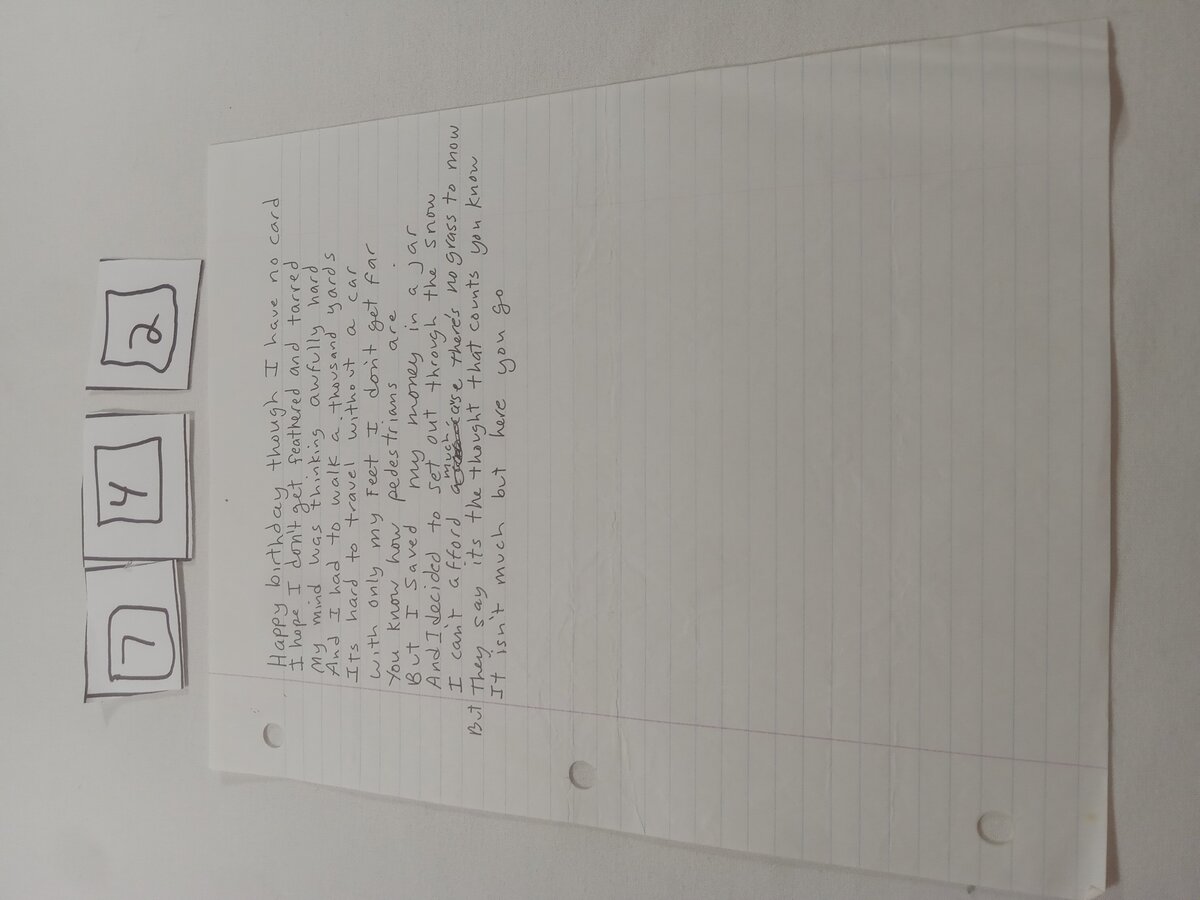 7 4 2
Happy birthday though I have no card
I hope I don't get feathered and tarred
My mind was thinking awfully hard
And I had to walk a thousand yards
Its hard to travel without a car
with only my Feet I don't get far
You know how pedestrians are.
But I saved my money in a jar
And I decided to set out through the snow
I can't afford much, cause there's no grass to mow
But They say its the thought that counts you know
It isn't much but here you go